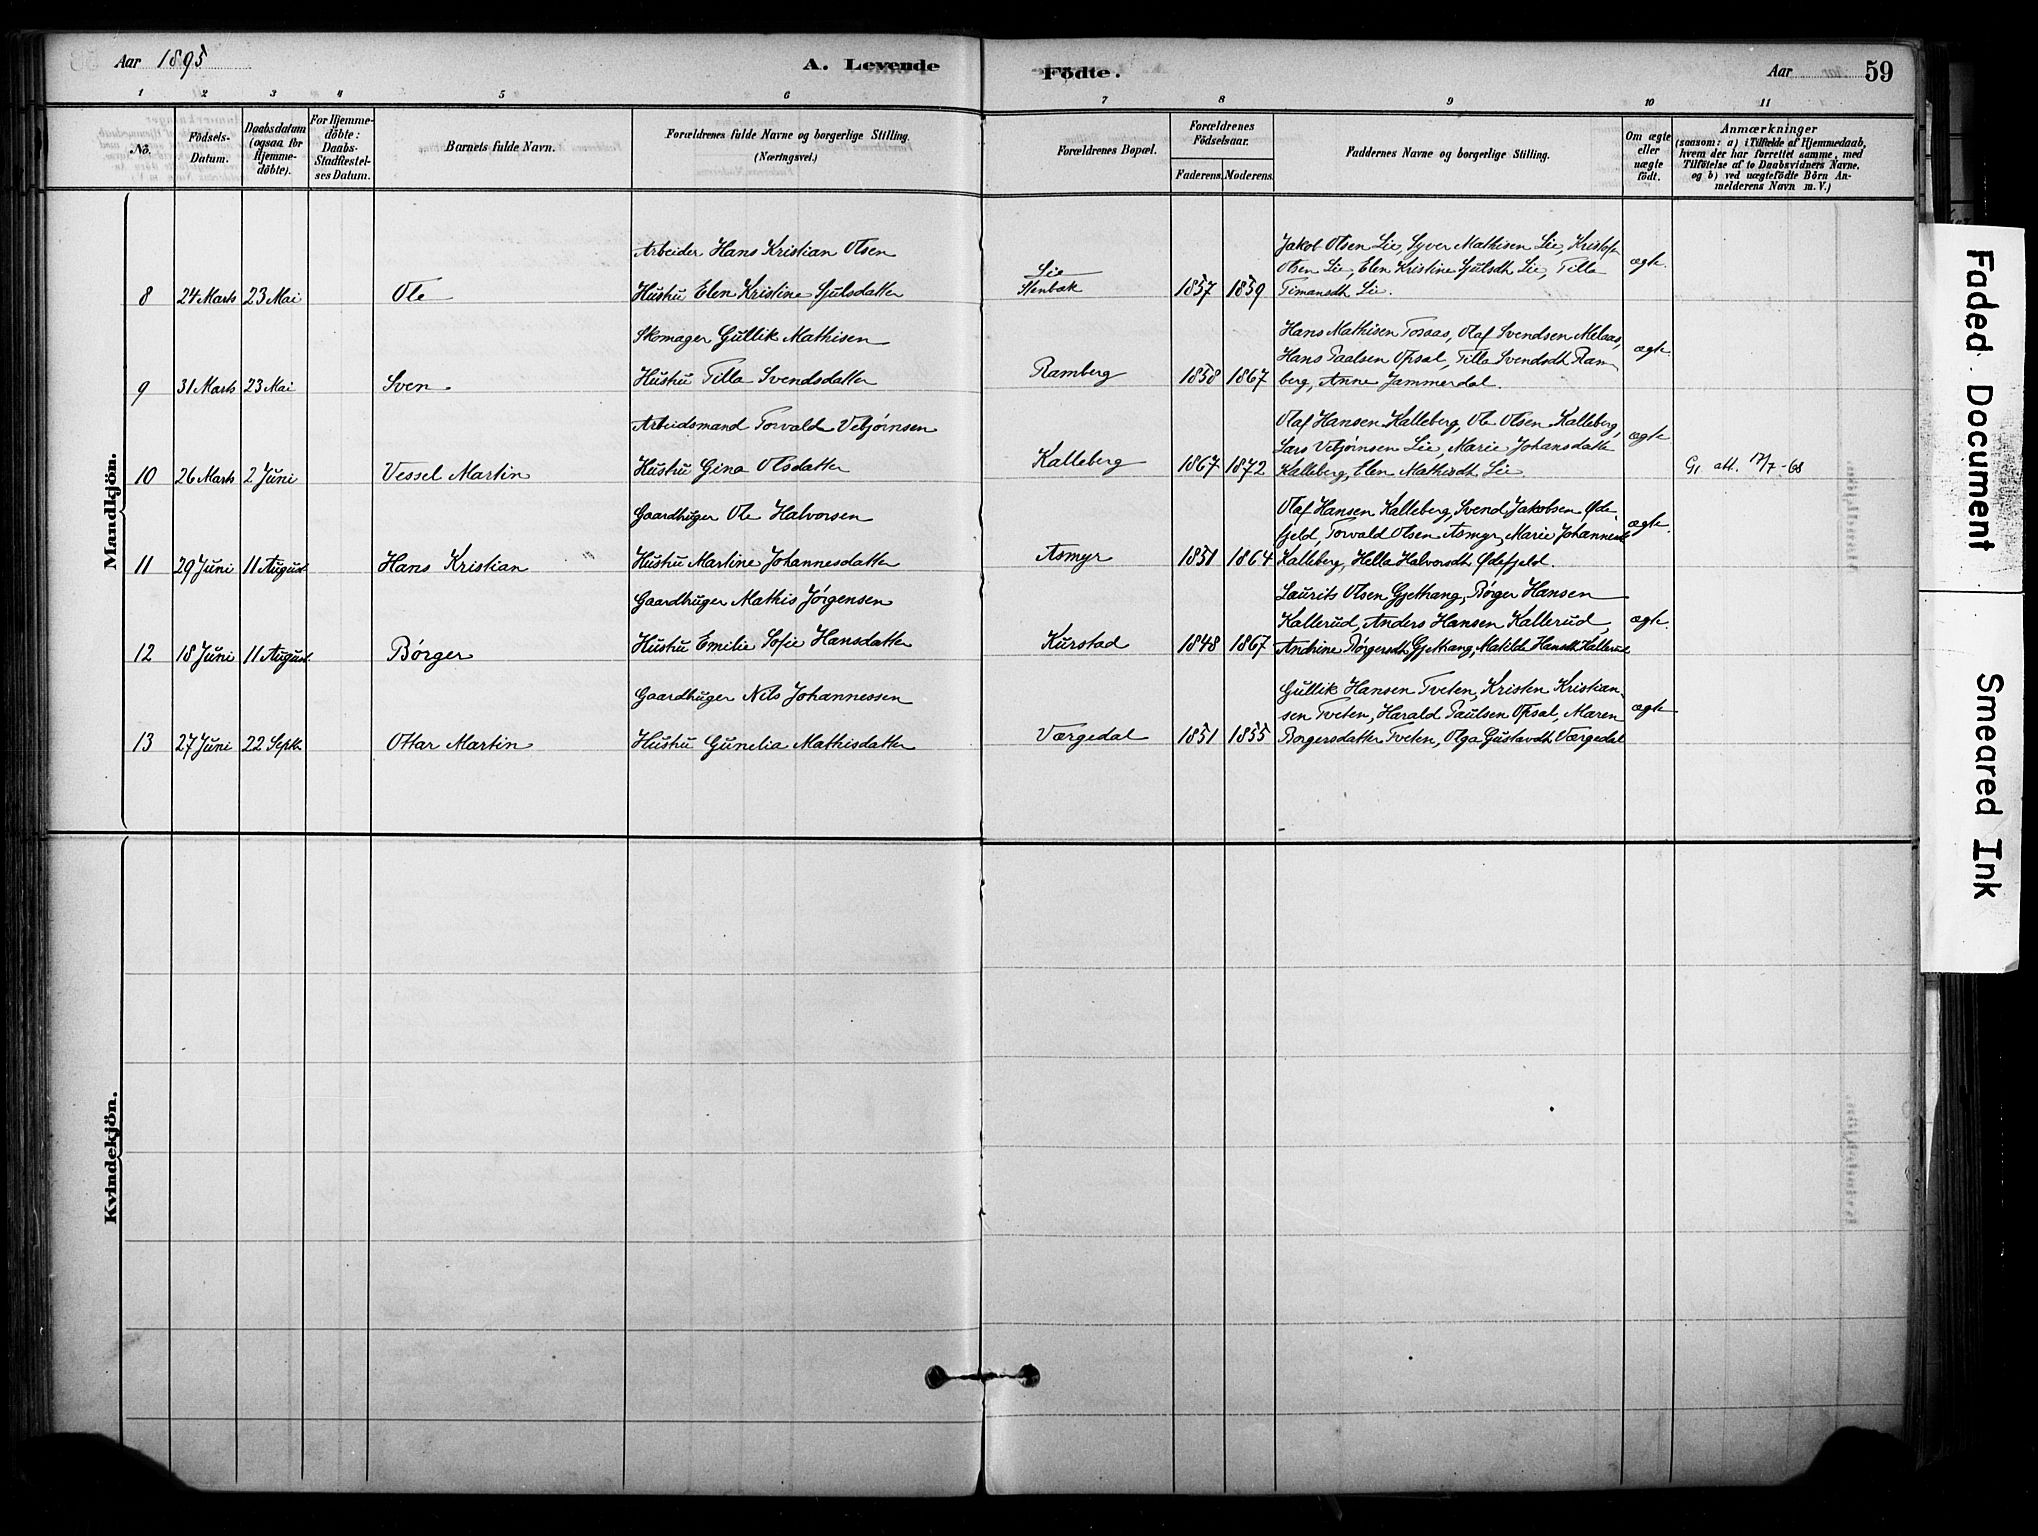 Aar 1895
A. Levende
Födte.
Aar
59
1 2 3 4 5 6 7 8 9 10 11
No.
Födsels-
Datum.
Daabsdatum
(ogsaa for
Hjemme-
döbte).
For Hjemme-
döbte:
Daabs-
Stadfæstel-
ses Datum.
Barnets fulde Navn.
Forældrenes fulde Navne og borgerlige Stilling.
(Næringsvei.)
Forældrenes Bopæl.
Forældrenes
Födselsaar.
Faderens. Moderens.
Faddernes Navne og borgerlige Stilling.
Om ægte
eller
uægte
födt.
Anmærkninger
(saasom: a) i Tilfælde af Hjemmedaab,
hvem der har forrettet samme, med
Tilföielse af to Daabsvidners Navne.
og b) ved uægtefödte Börn An-
melderens Navn m. V.)
Mandkjön.
8 24 Marts 23 Mai Ole
Arbeider Hans Kristian Olsen
Hustru Elen Kristine Sjulsdatter
Lie
Stenbæk
1857 1859
Jakob Olsen Lie, Syver Mathisen Lie, Kristofer
Olsen Lie, Elen Kristine Sjulsdtr Lie, Tilla
Timansdtr Lie.
ægte.
9 31 Marts 23 Mai Sven
Skomager Gullik Mathisen
Hustru Tilla Svendsdatter
Ramberg
1858 1867
Hans Mathisen Toraas, Olaf Svendsen Melaas,
Hans Paalsen Opsal, Tilla Svendsdtr Ram
berg, Anne Jammerdal.
ægte.
10 26 Marts 2 Juni Vessel Martin
Arbeidsmand Torvald Vebjørnsen
Hustru Gina Olsdatter
Kalleberg
1867 1872
Olaf Hansen Kalleberg, Ole Olsen Kalleberg,
Lars Vebjørnsen Lie, Marie Johansdatter
Kalleberg, Elen Mathisdtr Lie.
ægte
att. 17/7-68
11 29 Juni 11 August Hans Kristian
Gaardbruger Ole Halvorsen
Hustru Martine Johannesdatter
Asmyr
1851 1864
Olaf Hansen Kalleberg, Svend Jakobsen Øde-
fjeld, Torvald Olsen Asmyr, Marie Johannesdtr
Kalleberg, Hella Halvorsdtr Ødefjeld.
ægte.
12 18 Juni 11 August Børger
Gaardbruger Mathis Jørgensen
Hustru Emilie Sofie Hansdatter
Kurstad
1848 1867
Laurits Olsen Gjethang, Børger Hansen
Kallerud, Anders Hansen Kallerud,
Andrine Børgersdtr Gjethang, Matilde Hansdtr Kallerud
ægte.
13 27 Juni 22 Septbr Ottar Martin
Gaardbruger Nils Johannessen
Hustru Gunelia Mathisdatter
Værgedal
1851 1855
Gullik Hansen Tveten, Kristen Kristian-
sen Tveten, Harald Paulsen Opsal, Maren
Borgersdatter Tveten, Olga Gustavdtr Værgedal
ægte
Kvindekjön.
Faded Document
Smeared Ink